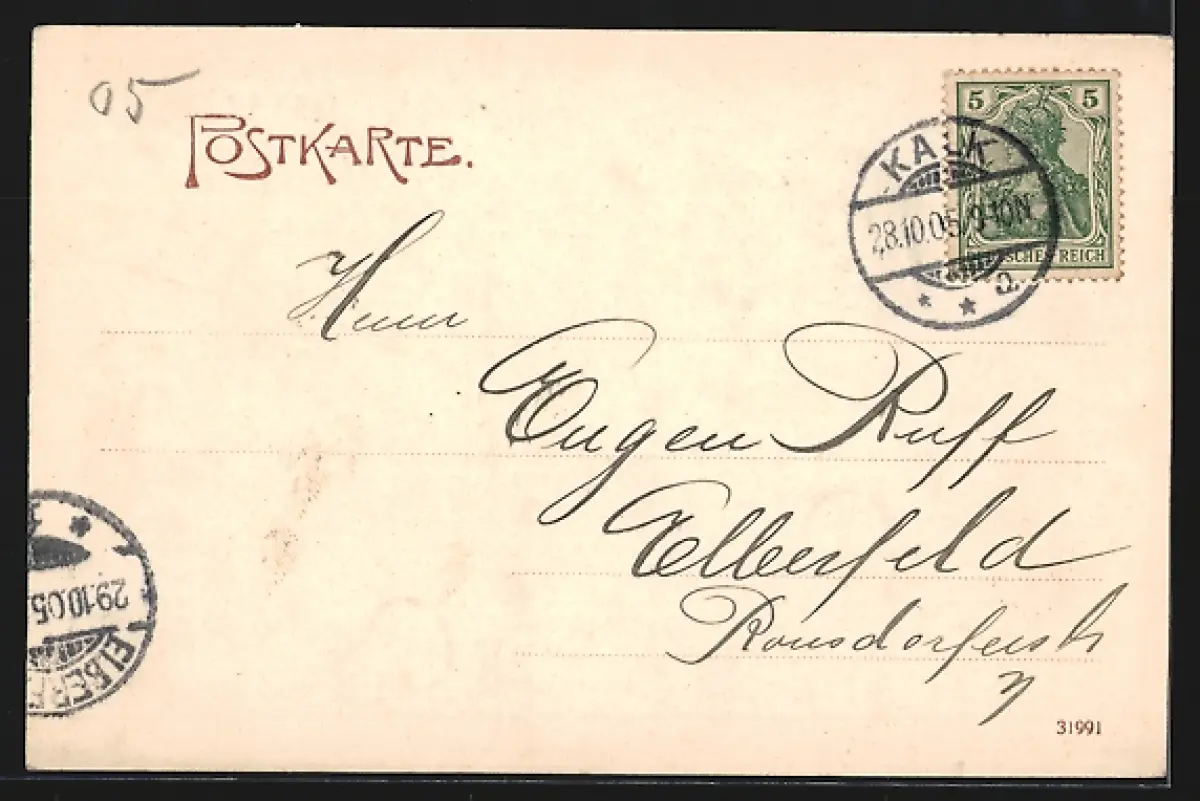 05
POSTKARTE.
5 5
KALK
28.10.05 9-10N.
DEUTSCHES REICH
* * a.
Herrn
Eugen Ruff
Elberfeld
Ronsdorferstr
29.10.05.
ELBERF
31991